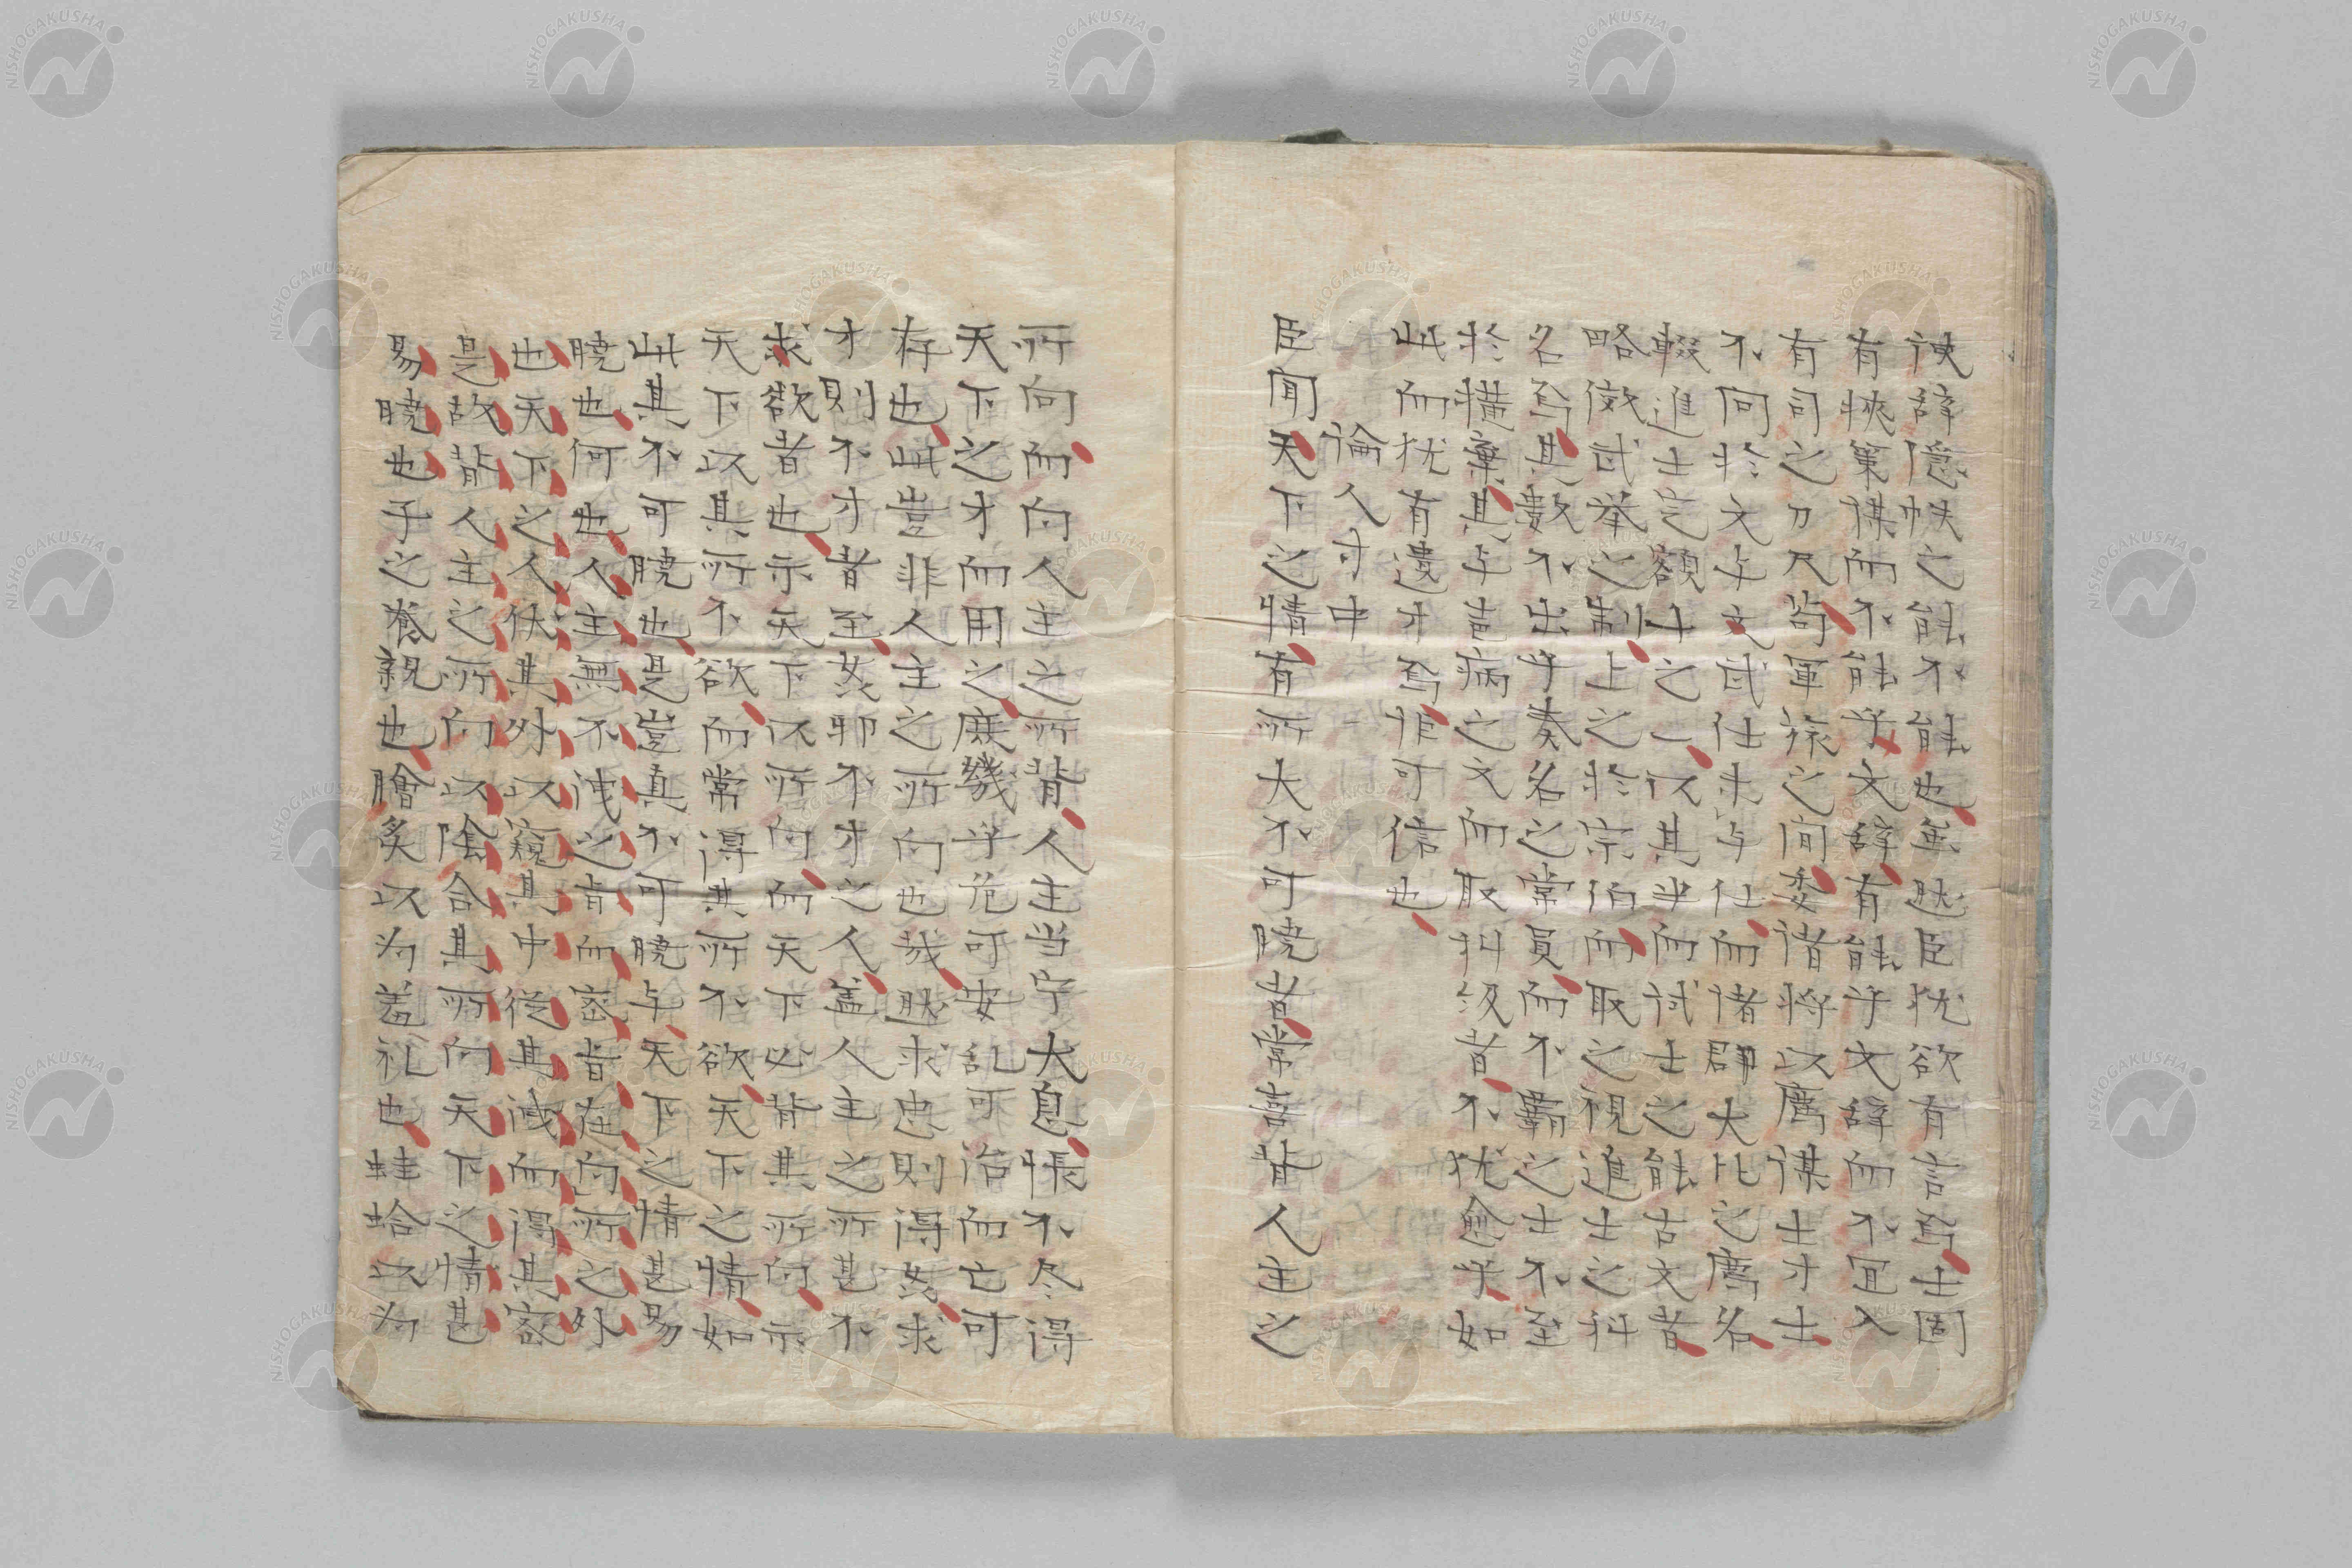 諛辞隠帙之能不能也虽然臣犹欲有言焉士固
有挾策謀而不能乎文辞有能乎文辞而不冝入
有司之刀尺苟軍旅之间委诸将以薦謀士才士
不问於文与文武仕未与仕而诸群大比之薦名
輟進士定額十之一以其半而试士之能古文者
略倣武举之制上之於宗伯而取之視進士之科
名焉其數不出乎奏名之常員而不覊之士不至
於横棄其与声病之文而取抖级者不犹愈乎如
此而犹有遺才焉非可信也
論人才中
臣闻天下之情有所大不可曉者常喜背人主之
所向而向人主之所背人主当宁大息悵不尽得
天下之才而用之庶幾乎危可安乱可治而亡可
存也此豈非人主之所向也哉然求忠則得姦求
才則不才者至姦邪不才之人盖人主之所甚不
求欲者也示天下以所向而天下必背其所向示
天下以其所不欲而常得其所不欲天下之情如
此其不可曉也是豈真不可曉与天下之情甚易
曉也何也人主無不洩之肯而密肯在向所之外
也天下之人伏其外以窺其中從其洩而得其密
是故背人主之所向以陰合其所向天下之情甚
易曉也子之养親也膾炙以为羞礼也蛙蛤以为